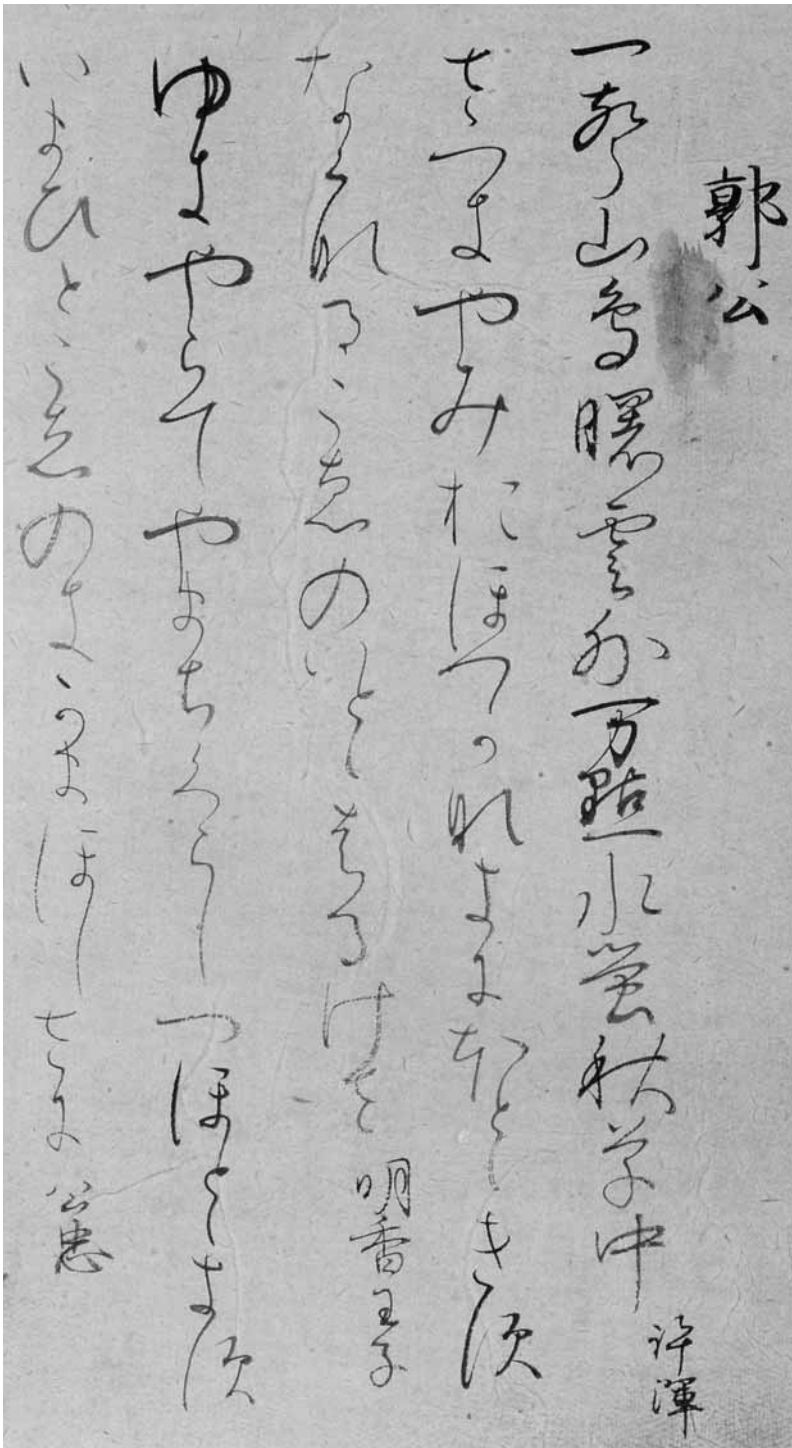 郭公
一声山鳥曙雲外万點水蛍秋草中 許渾
さつきやみおほつかなきにほとゝきす
なくなるこゑのいとゝはるけさ 明香王子
ゆきやらてやまちくらしつほとゝきす
いまひとこゑのきかまほしさに 公忠